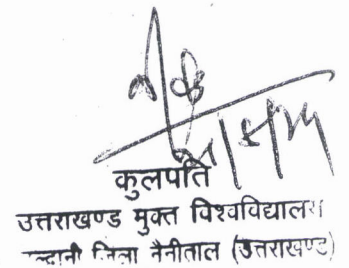 कुलपति
उत्तराखण्ड मुक्त विश्वविद्यालय
जिला नैनीताल (उत्तराखण्ड)